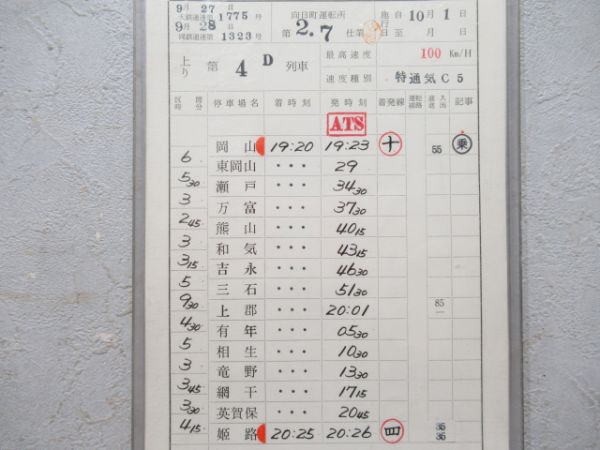 9月27日
大鉄達第1775号
9月28
岡鉄運達第1323号
向日町運転所
第2.7仕業
施行 自10月1日
至 月 日
上り 第4D列車
最高速度 100 Km/H
速度種別 特通気C5
区間時分 停車場名 着時刻 発時刻 着発線 運転線路 制限速度 記事
ATS
岡山 19:20 19:23 十 55 乗
6
東岡山 ・・・ 29
5 30
瀬戸 ・・・ 34 30
3
万富 ・・・ 37 30
2 45
熊山 ・・・ 40 15
3
和気 ・・・ 43 15
3 15
吉永 ・・・ 46 30
5
三石 ・・・ 51 30
9 30
上郡 ・・・ 20:01 85
4 30
有年 ・・・ 05 30
5
相生 ・・・ 10 30
3
竜野 ・・・ 13 30
3 45
網干 ・・・ 17 15
3 30
英賀保 ・・・ 20 45
4 15
姫路 20:25 20:26 四 35
35